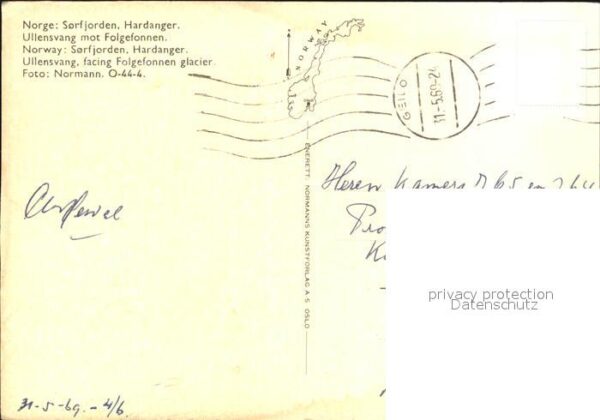 Norge: Sørfjorden, Hardanger.
Ullensvang mot Folgefonnen.
Norway: Sørfjorden, Hardanger.
Ullensvang, facing Folgefonnen glacier
Foto: Normann. O-44-4.
NORWAY
GEILO
31-5.69-24
ENERETT: NORMANNS KUNSTFORLAG A.S. OSLO
Heren Kamers 765 en
privacy protection
Datenschutz
31-5-69.-4/6